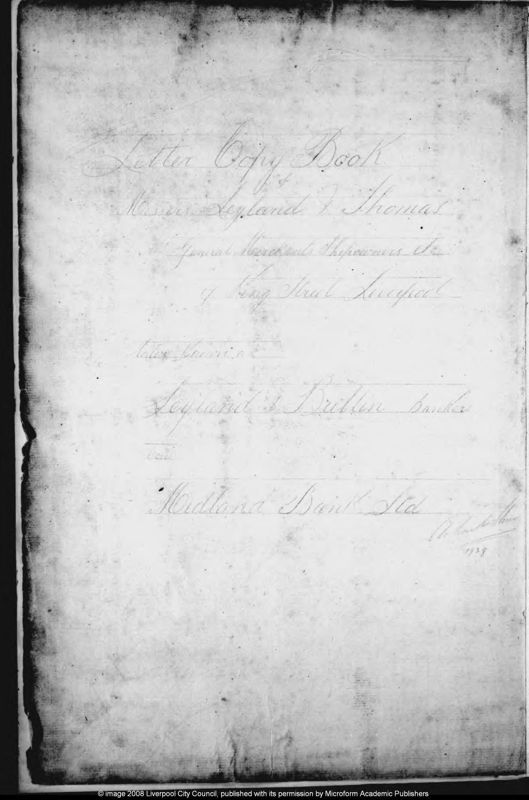 Letter Copy Book
of
Messrs Leyland & Thomas
General Merchants Shipowners etc
King Street Liverpool
later known
Leyland & Bullen Bankers
Midland Bank Ltd
© image 2008 Liverpool City Council, published with its permission by Microform Academic Publishers